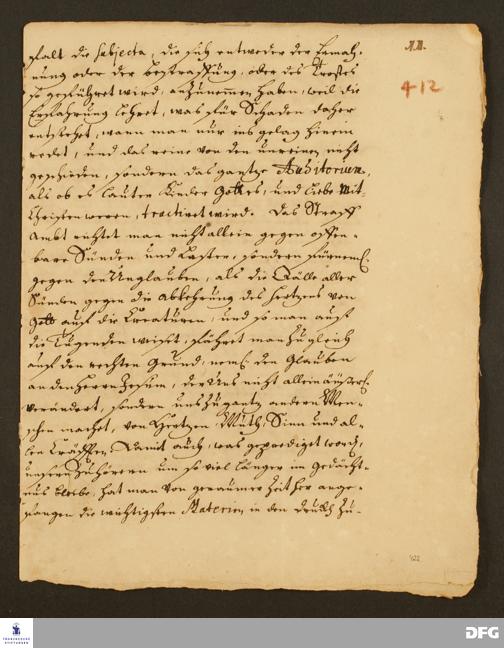 NB.
412
falt die subjecta, die sich entweder der Ermah-
nung oder der bestraffung, oder des Trostes
so geführet wird, anzunemmen haben, weil die
Erfahrung lehret, was für Schaden daher
entstehet, wann man nur ins gelag hinein
redet, und das reine von den unreinen nicht
geschieden, sondern das gantze Auditorium,
als ob es lauter Kinder Gottes, und liebe Mit-
Christen weren, tractiret wird. Das Straff
Ambt richtet man nicht allein gegen offen-
bare Sünden und Laster, sondern fürneml.
gegen den Unglauben, als die Quelle aller
Sünden gegen die abkehrung des Hertzens von
Gott auf die Creaturen, und so man auf
die Tugenden weiset, führet man zugleich
auf den rechten Grund, neml. den Glauben
an den Herrn Jesum, der Uns nicht allein äüserl.
verändert, sondern uns zu gantz andern Men-
schen machet, von Hertzen, Muth, Sinn und al-
len Kräfften. Damit auch, was geprediget word,
unsern Zuhörern um so viel länger im Gedächt-
nüs bleibe, hat man von geraumer Zeit her ange-
fangen die wichtigsten Materien in den druck zu-
422
FRANCKESCHE
STIFTUNGEN
DFG